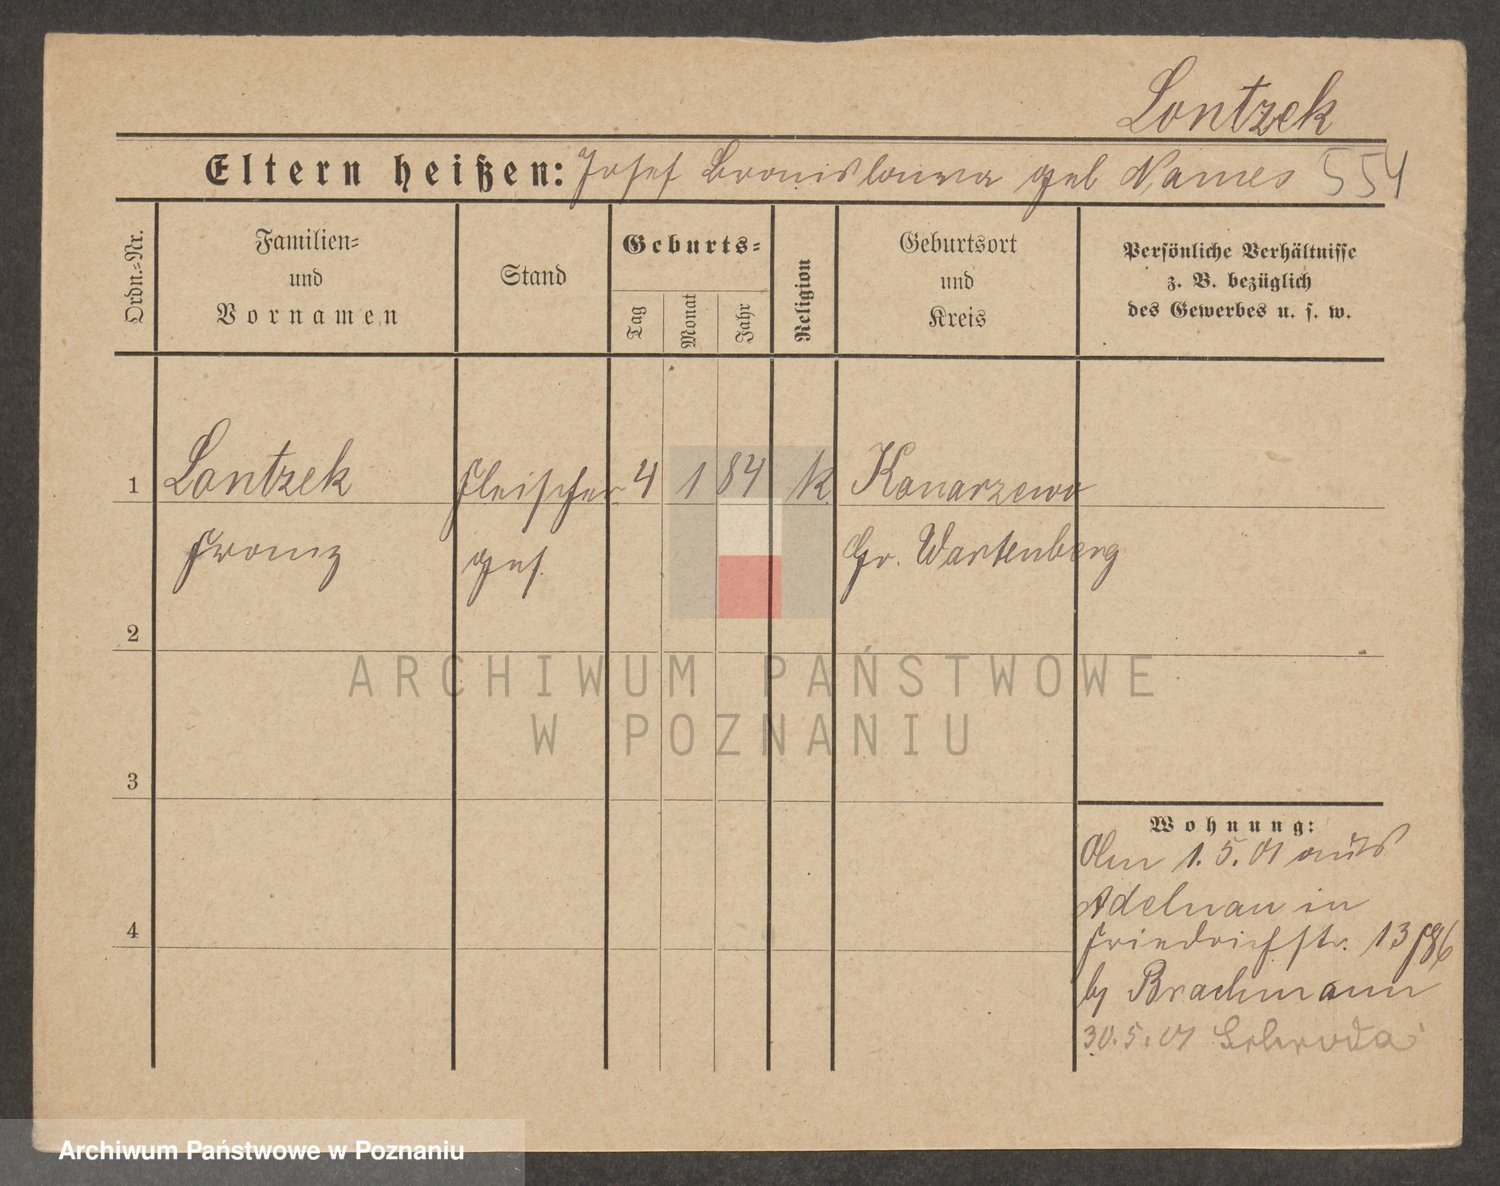 Lontzek
Eltern heißen: Josef Bronislawa geb Names 554
Ordn.=Nr.
Familien=
und
Vornamen
Stand
Geburts=
Tag
Monat
Jahr
Religion
Geburtsort
und
Kreis
Persönliche Verhältnisse
z. B. bezüglich
des Gewerbes u. s. w.
1 Lontzek Fleischer 4 1 84 k Konarzewo
Franz ges. Gr. Wartenberg
2
3
4
Wohnung:
Am 1.5.01 aus
Adelnau in
Friedrichstr. 13
by Brachmann
30.5.01 Schroda
ARCHIWUM PAŃSTWOWE
W POZNANIU
Archiwum Państwowe w Poznaniu